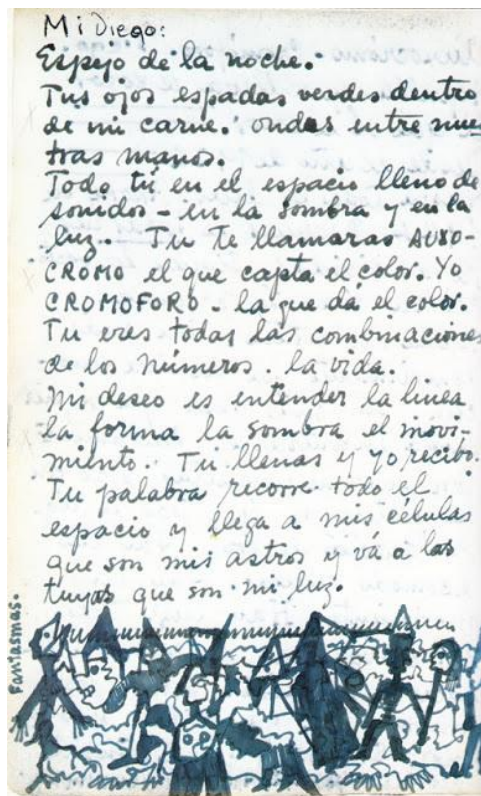 Mi Diego:
Espejo de la noche.
Tus ojos espadas verdes dentro
de mi carne. ondas entre nues
tras manos.
Todo tú en el espacio lleno de
sonidos - en la sombra y en la
luz. Tu te llamaras AUXO-
CROMO el que capta el color. Yo
CROMOFORO - la que dá el color.
Tu eres todas las combinaciones
de los números. la vida.
Mi deseo es entender la linea
la forma la sombra el movi-
miento. Tu llenas y yo recibo.
Tu palabra recorre todo el
espacio y llega a mis células
que son mis astros y vá a las
tuyas que son mi luz.
Fantasmas.